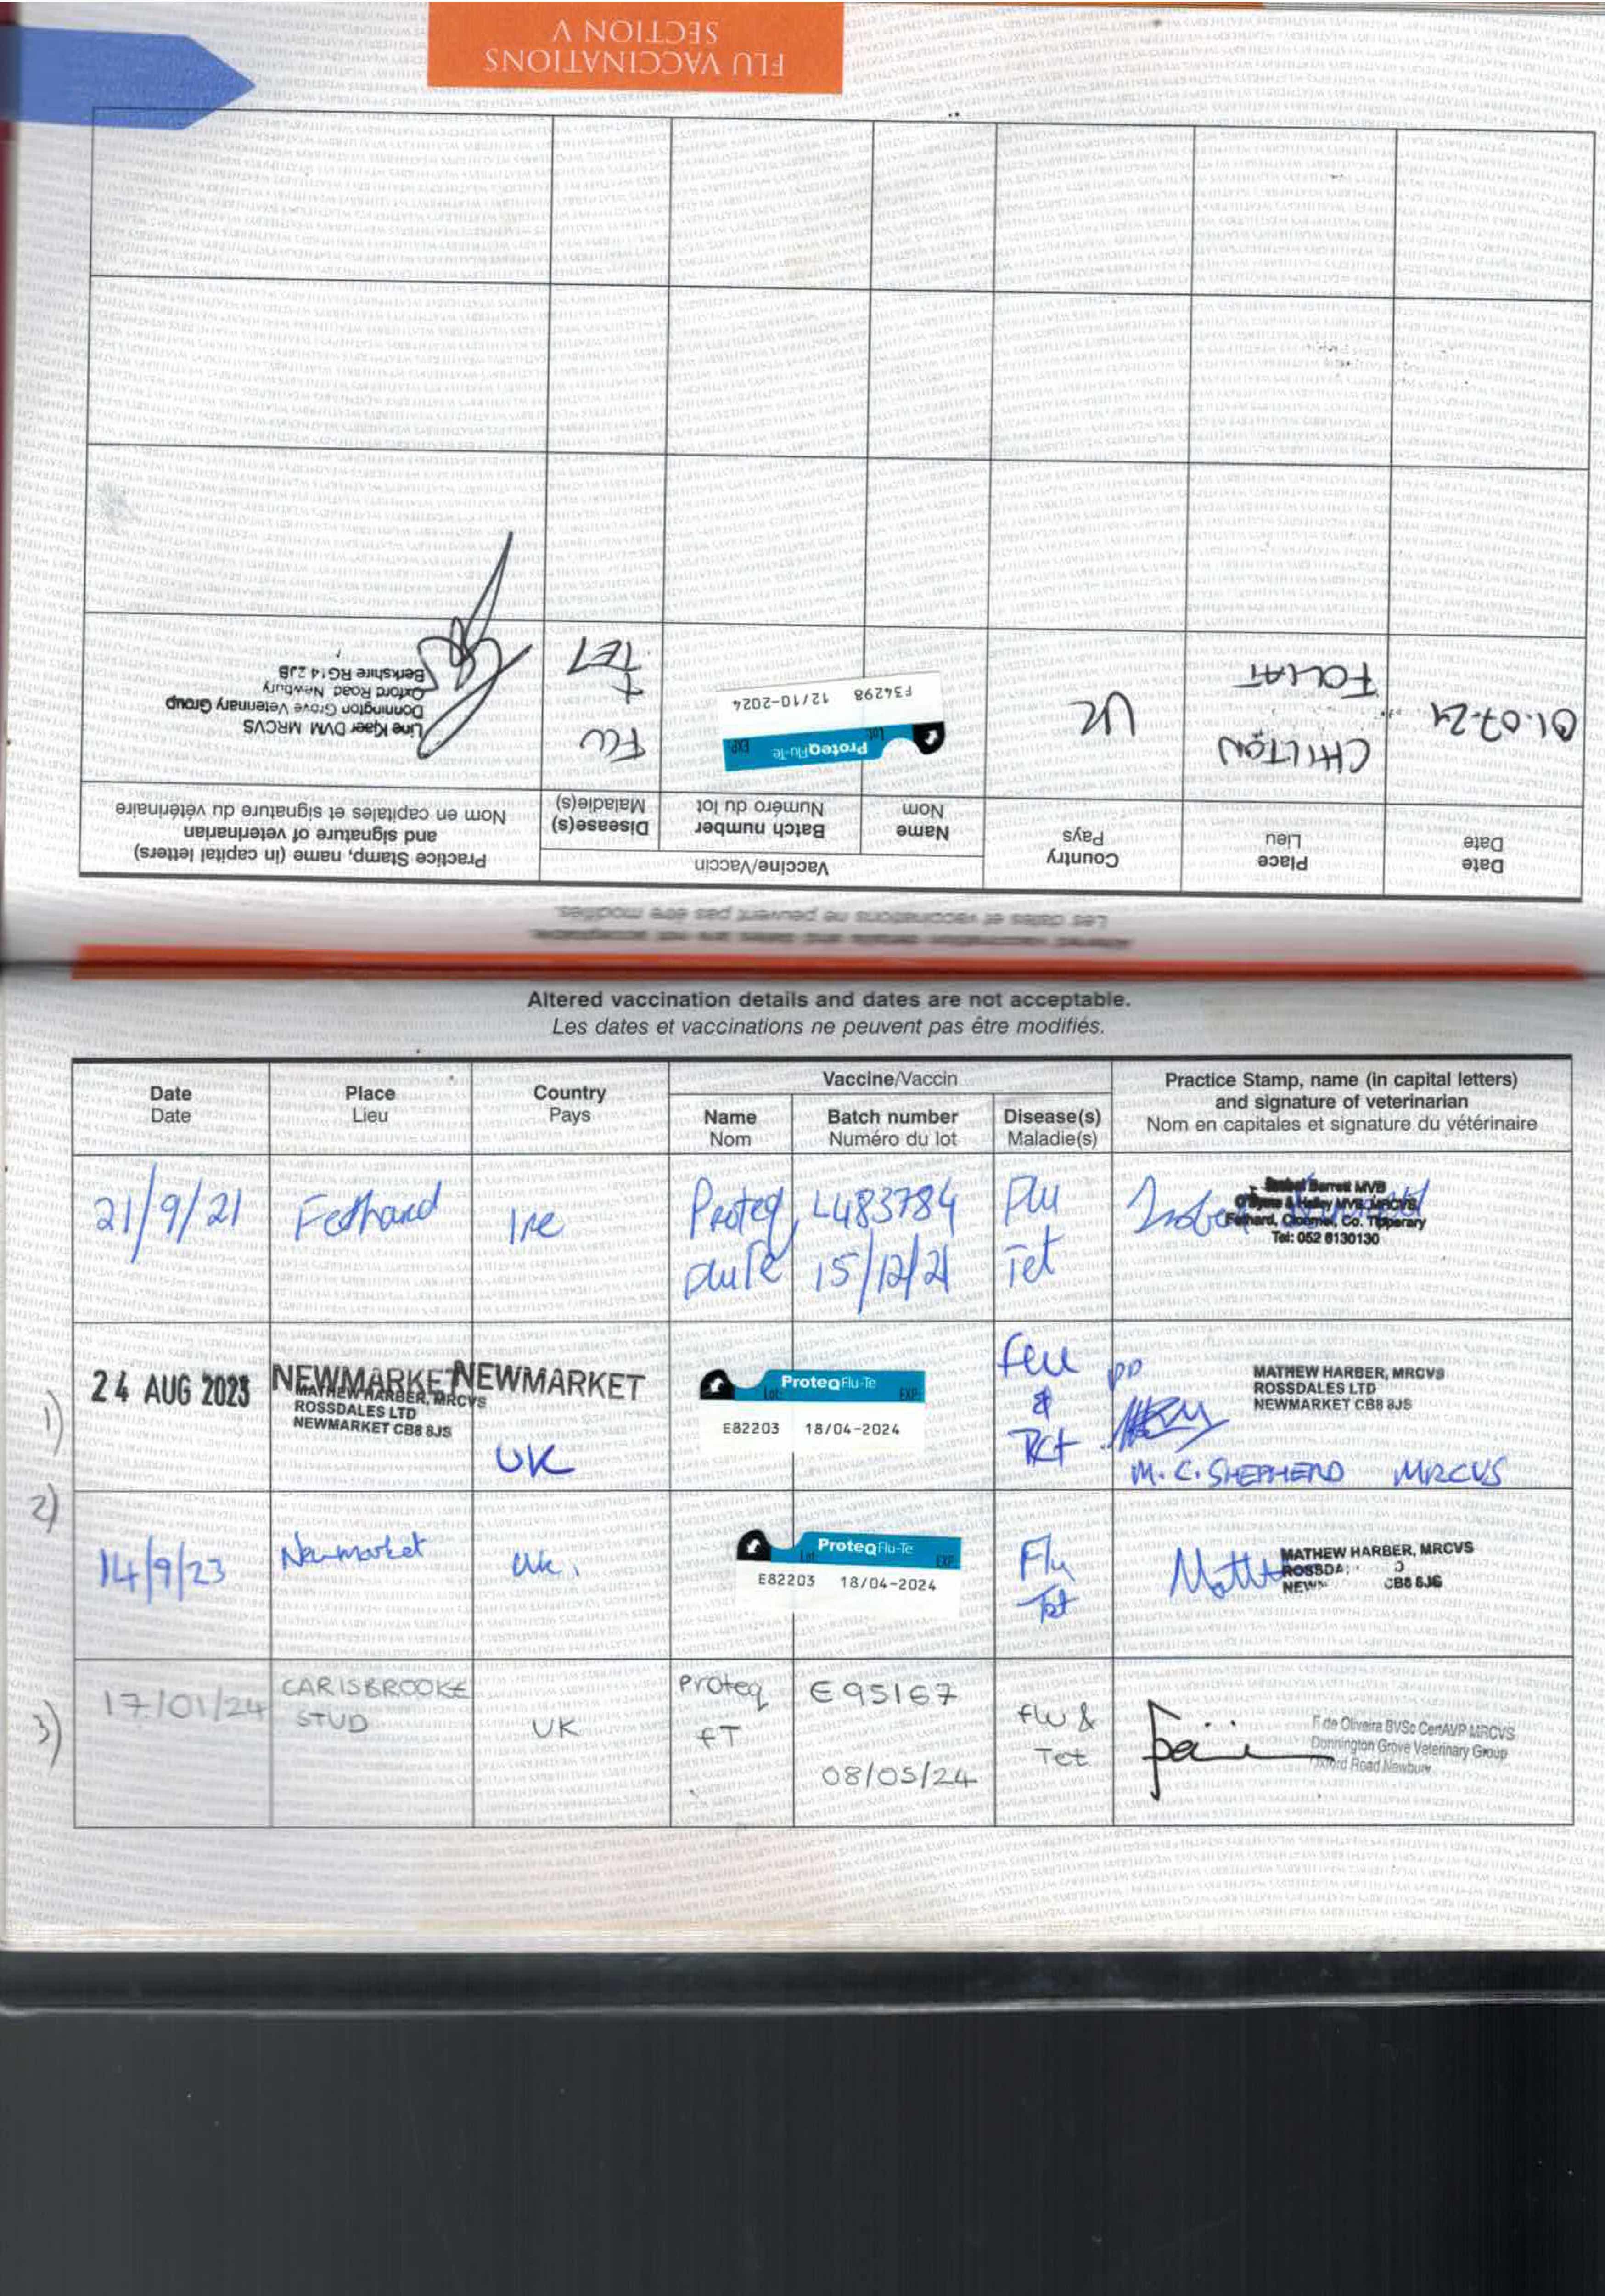 FLU VACCINATIONS
SECTION V
Altered vaccination details and dates are not acceptable.
Les dates et vaccinations ne peuvent pas être modifiés.
Date
Date
Place
Lieu
Country
Pays
Vaccine/Vaccin
Name
Nom
Batch number
Numéro du lot
Disease(s)
Maladie(s)
Practice Stamp, name (in capital letters)
and signature of veterinarian
Nom en capitales et signature du vétérinaire
01.07.24
CHILTON
FOLIAT
UK
ProteqFlu-Te
Lot:
EXP:
F34298 12/10-2024
FLU
+
TET
Line Kjaer DVM MRCVS
Donnington Grove Veterinary Group
Oxford Road, Newbury
Berkshire RG14 2JB
Altered vaccination details and dates are not acceptable.
Les dates et vaccinations ne peuvent pas être modifiés.
Date
Date
Place
Lieu
Country
Pays
Vaccine/Vaccin
Name
Nom
Batch number
Numéro du lot
Disease(s)
Maladie(s)
Practice Stamp, name (in capital letters)
and signature of veterinarian
Nom en capitales et signature du vétérinaire
21/9/21
Fethard
Ire
Proteq
FluTe
L483784
15/12/21
Flu
Tet
Barrett MVB
& Halley MVB, MRCVS,
Fethard, Clonmel, Co. Tipperary
Tel: 052 6130130
1)
24 AUG 2023
NEWMARKET
NEWMARKET
MATHEW HARBER, MRCVS
ROSSDALES LTD
NEWMARKET CB8 8JS
UK
ProteqFlu-Te
Lot:
EXP:
E82203 18/04-2024
Flu
&
Tet
pp
MATHEW HARBER, MRCVS
ROSSDALES LTD
NEWMARKET CB8 8JS
M. C. SHEPHERD MRCVS
2)
14/9/23
Newmarket
Uk.
ProteqFlu-Te
Lot:
EXP:
E82203 18/04-2024
Flu
Tet
MATHEW HARBER, MRCVS
3)
17/01/24
CARISBROOKE
STUD
UK
Proteq
FT
E95167
08/05/24
flu &
Tet
F de Oliveira BVSc CertAVP MRCVS
Donnington Grove Veterinary Group
Oxford Road Newbury